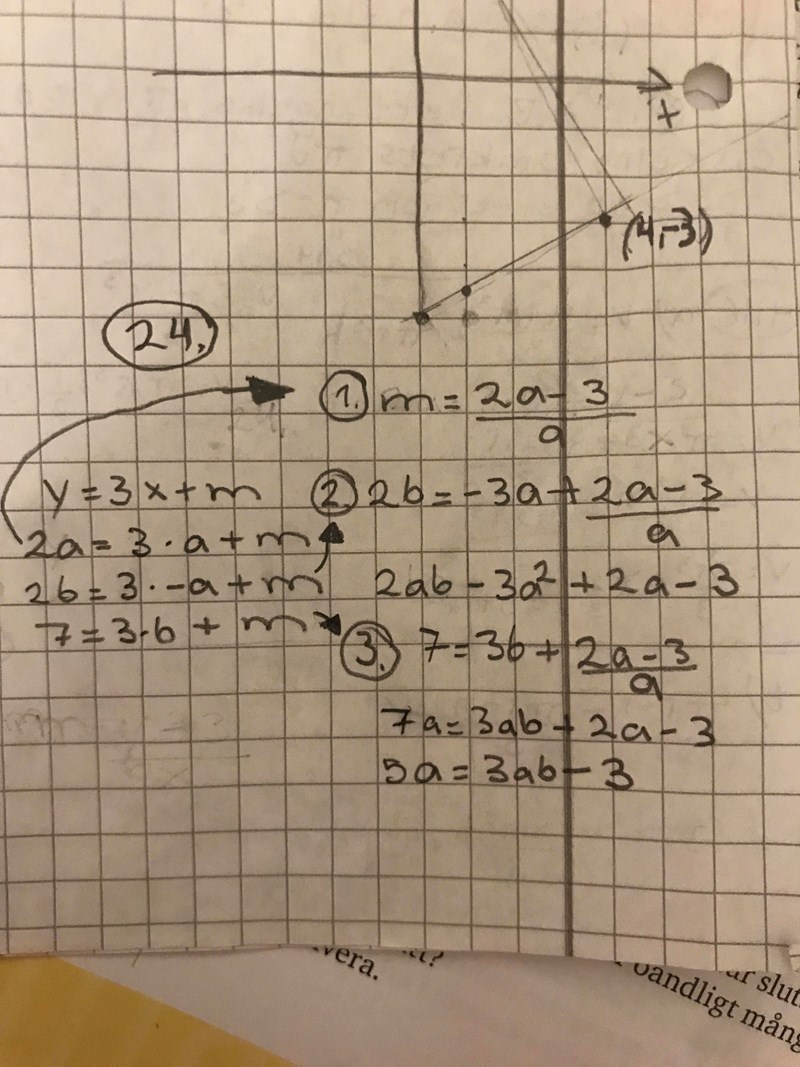 x
(4,-3)
24.
1. m = 2a - 3 / a
y = 3x + m
2 2b = -3a + 2a - 3 / a
2a = 3 · a + m
2b = 3 · -a + m
2ab - 3a² + 2a - 3
7 = 3·b + m
3. 7 = 3b + 2a - 3 / a
7a = 3ab + 2a - 3
5a = 3ab - 3
vera.
är slut
oändligt mång